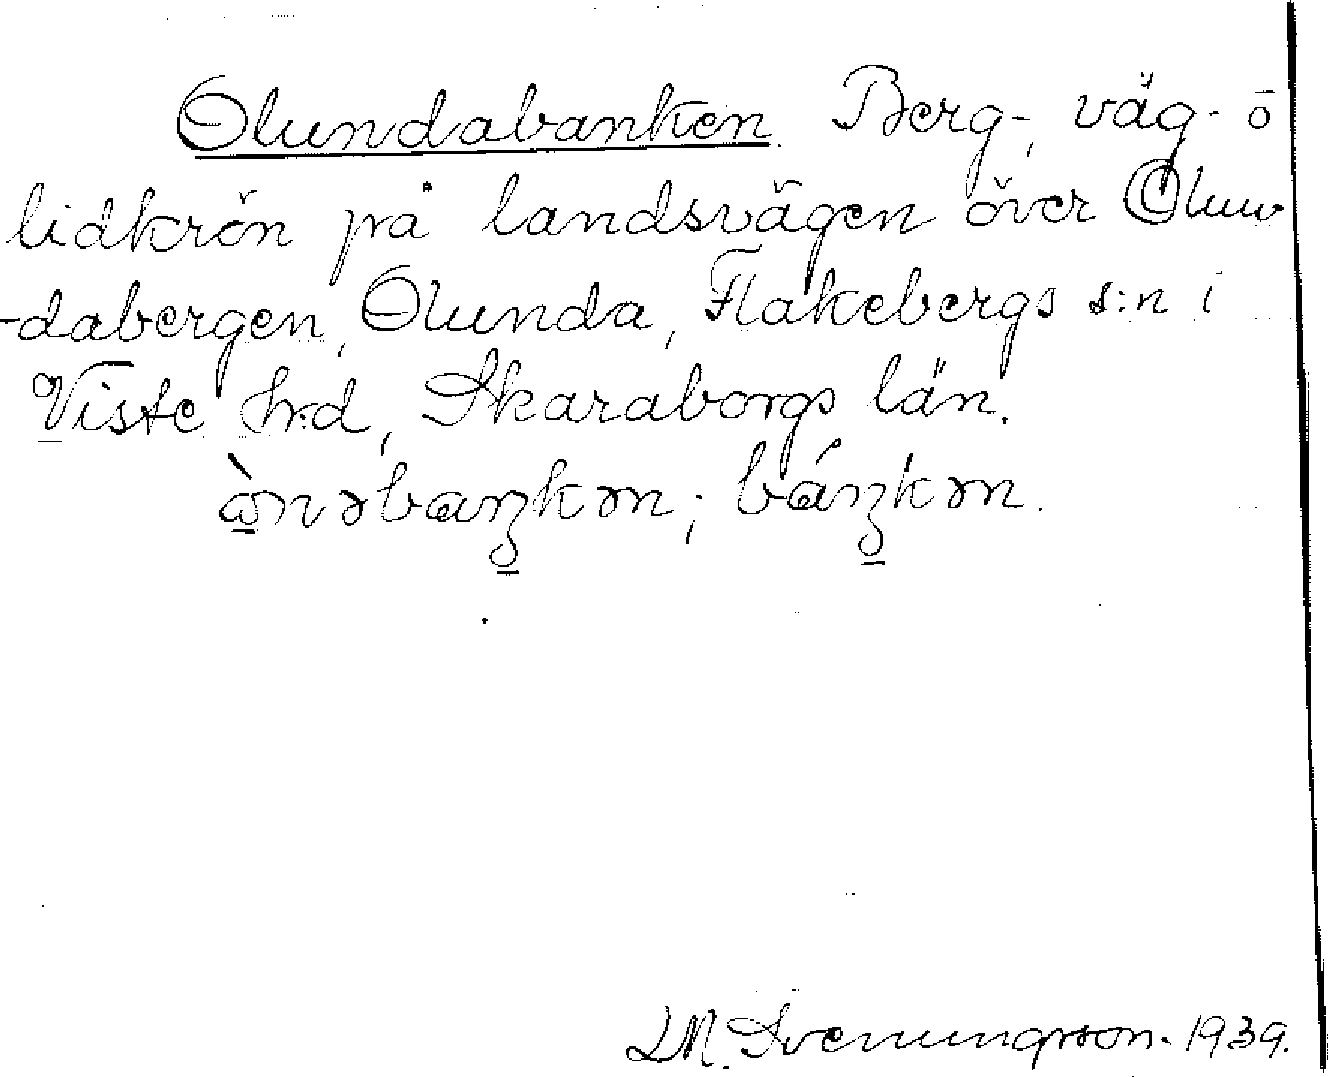 Olundabanken. Berg-, väg- o
lidkrön på landsvägen över Olun
-dabergen, Olunda, Flakebergs s:n i
Viste hrd, Skaraborgs län.
ə̀nəbaŋkən; báŋkən.
LM. Svenungsson. 1939.